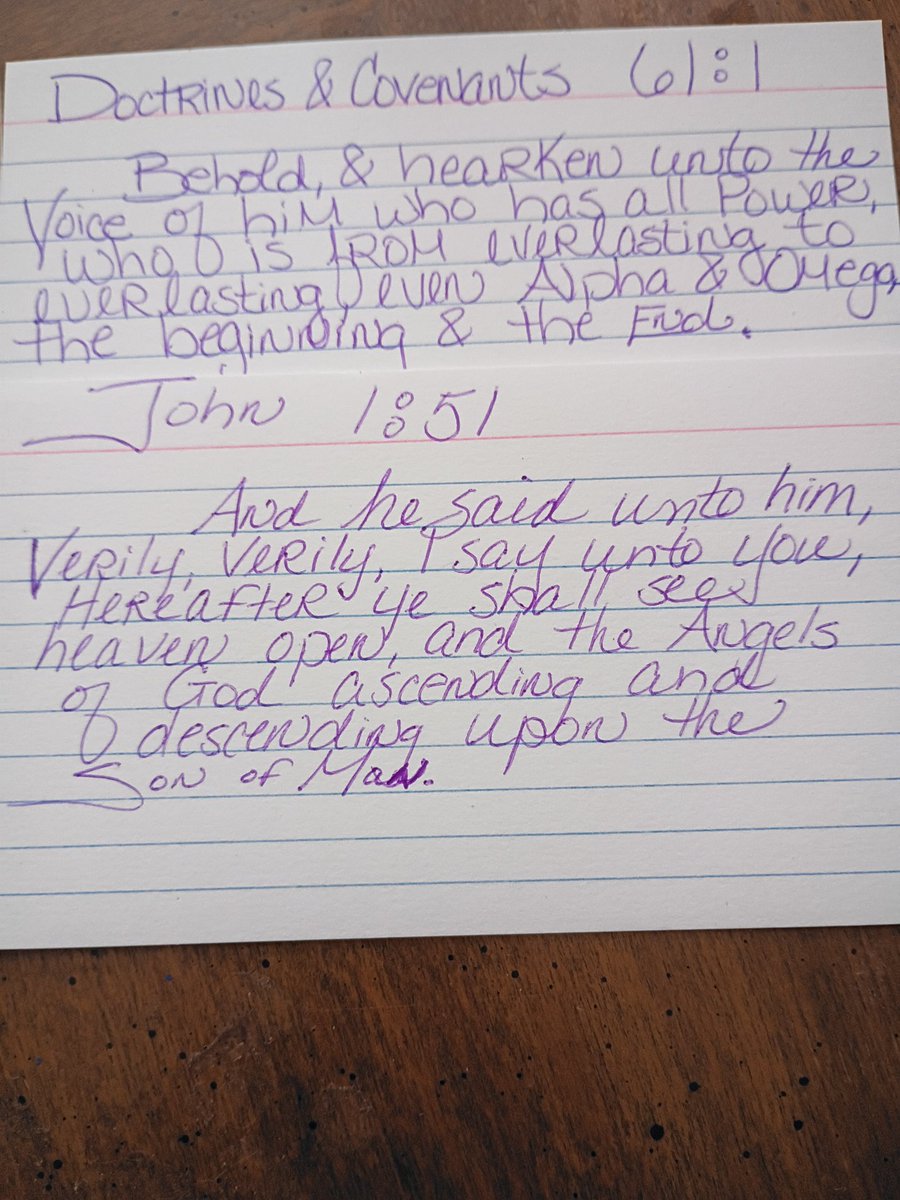 Doctrines & Covenants 61:1
Behold, & hearken unto the
Voice of him who has all Power,
who is from everlasting to
everlasting, even Alpha & Omega,
the beginning & the End.
John 1:51
And he said unto him,
Verily, Verily, I say unto you,
Hereafter ye shall see
heaven open, and the Angels
of God ascending and
descending upon the
Son of Man.